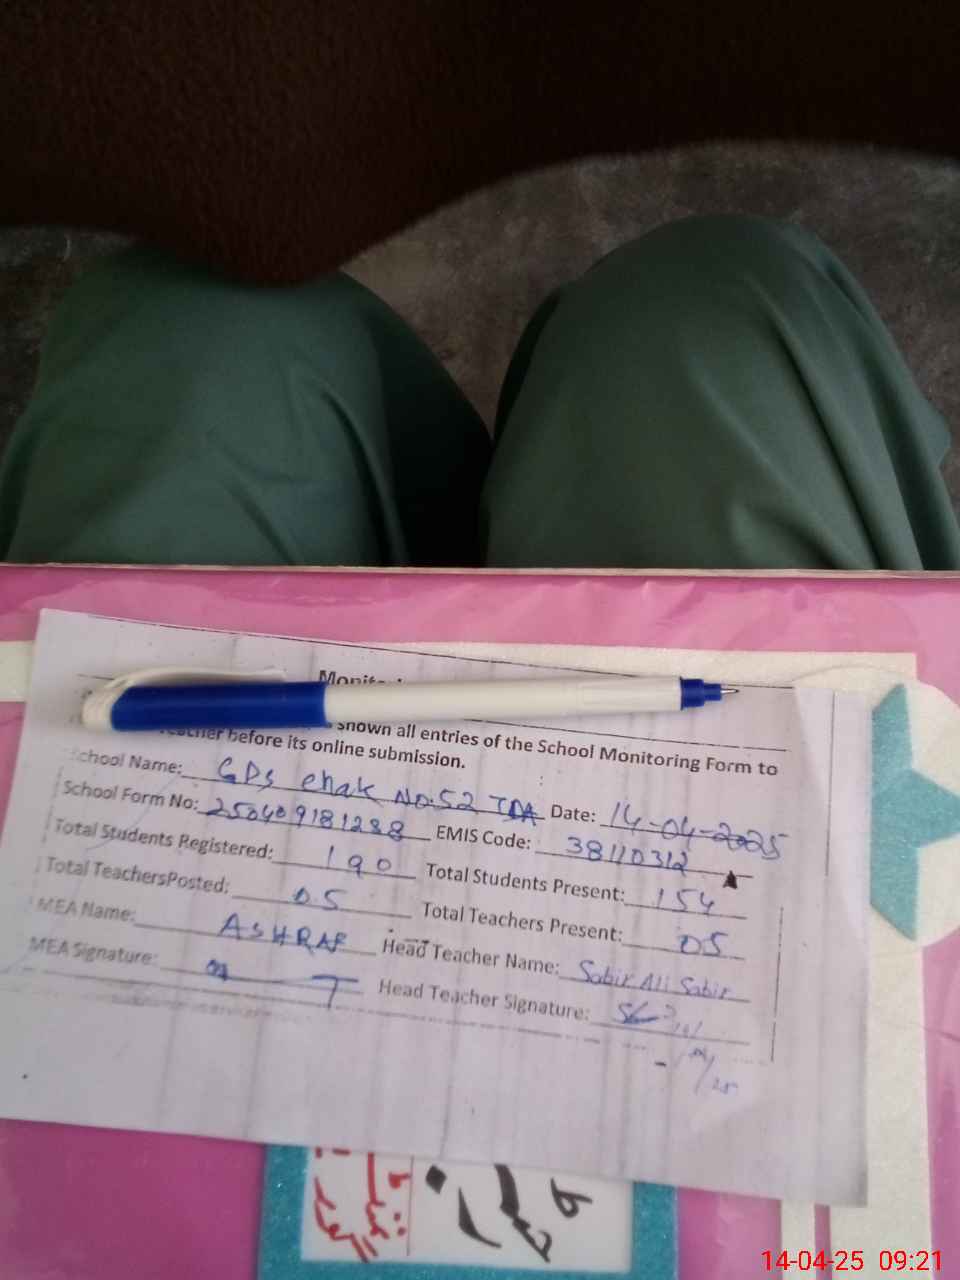 shown all entries of the School Monitoring Form to
before its online submission.
School Name: GPS chak No.52 TDA Date: 14-04-2025
School Form No: 250409181288 EMIS Code: 38110312
Total Students Registered: 190 Total Students Present: 154
Total TeachersPosted: 05 Total Teachers Present: 05
MEA Name: ASHRAF Head Teacher Name: Sabir Ali Sabir
MEA Signature: Head Teacher Signature:
14-04-25 09:21